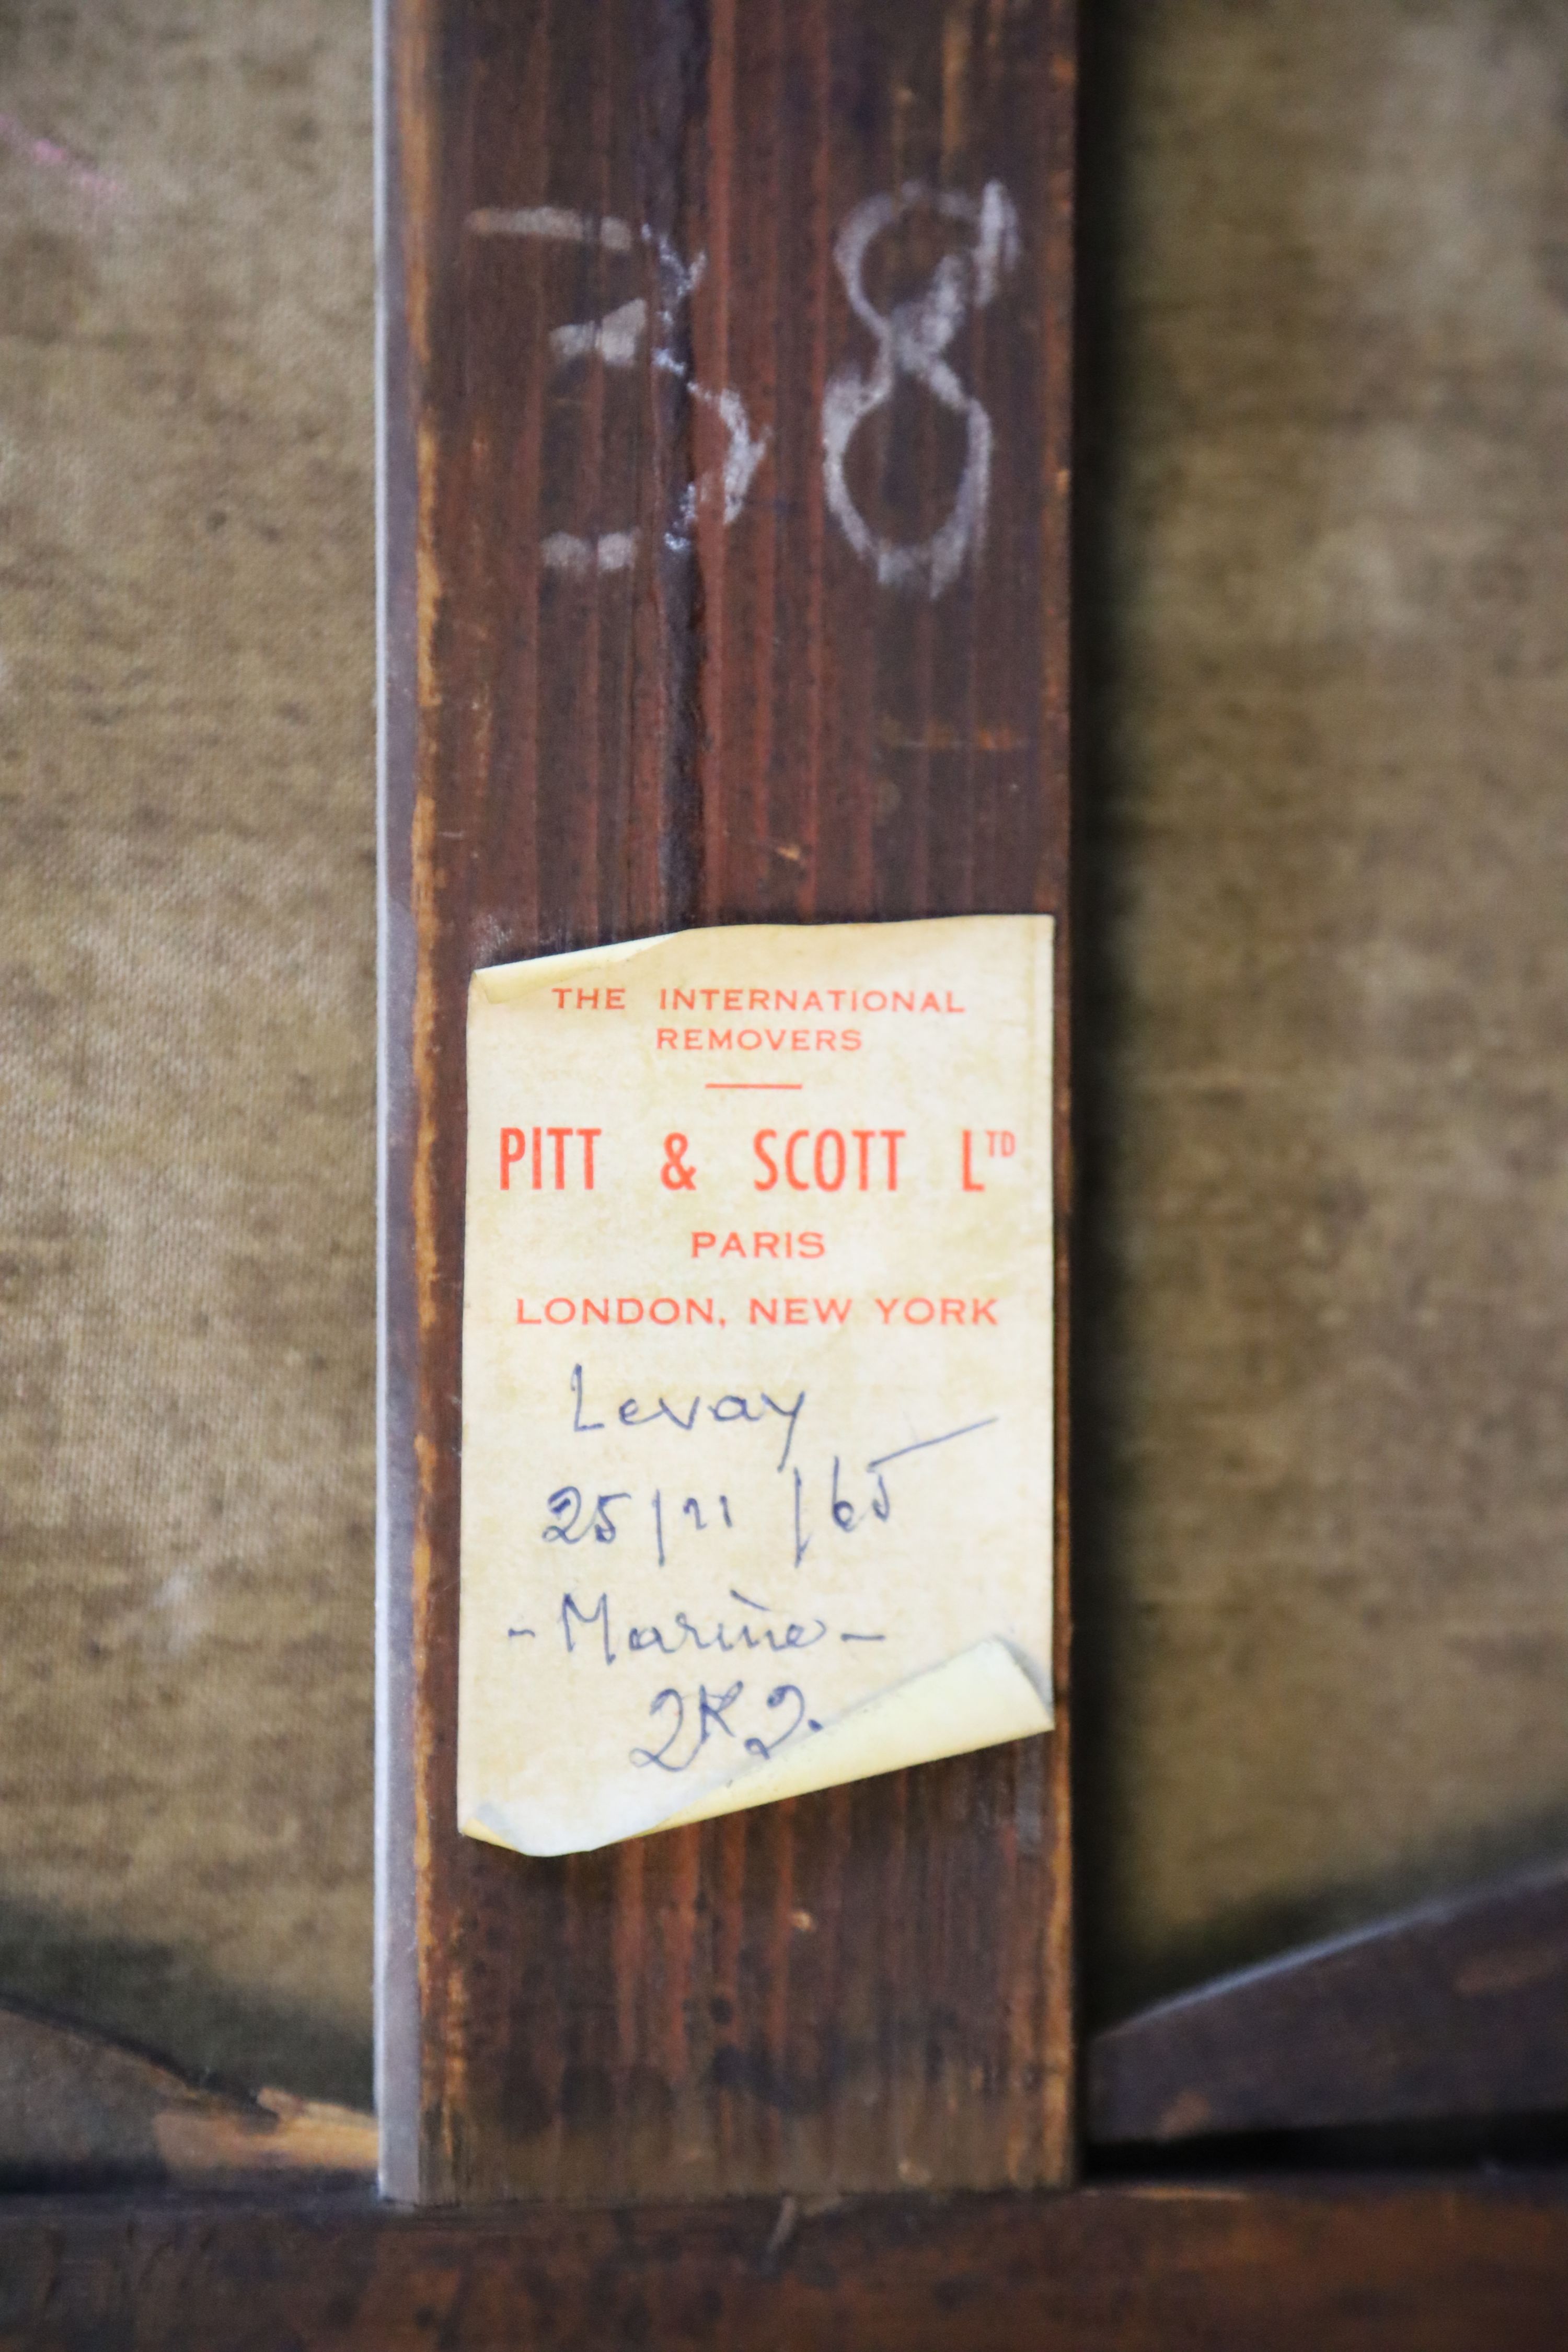 38
THE INTERNATIONAL
REMOVERS
PITT & SCOTT LTD
PARIS
LONDON, NEW YORK
Levay
25/11/65
- Marine -
2K2.